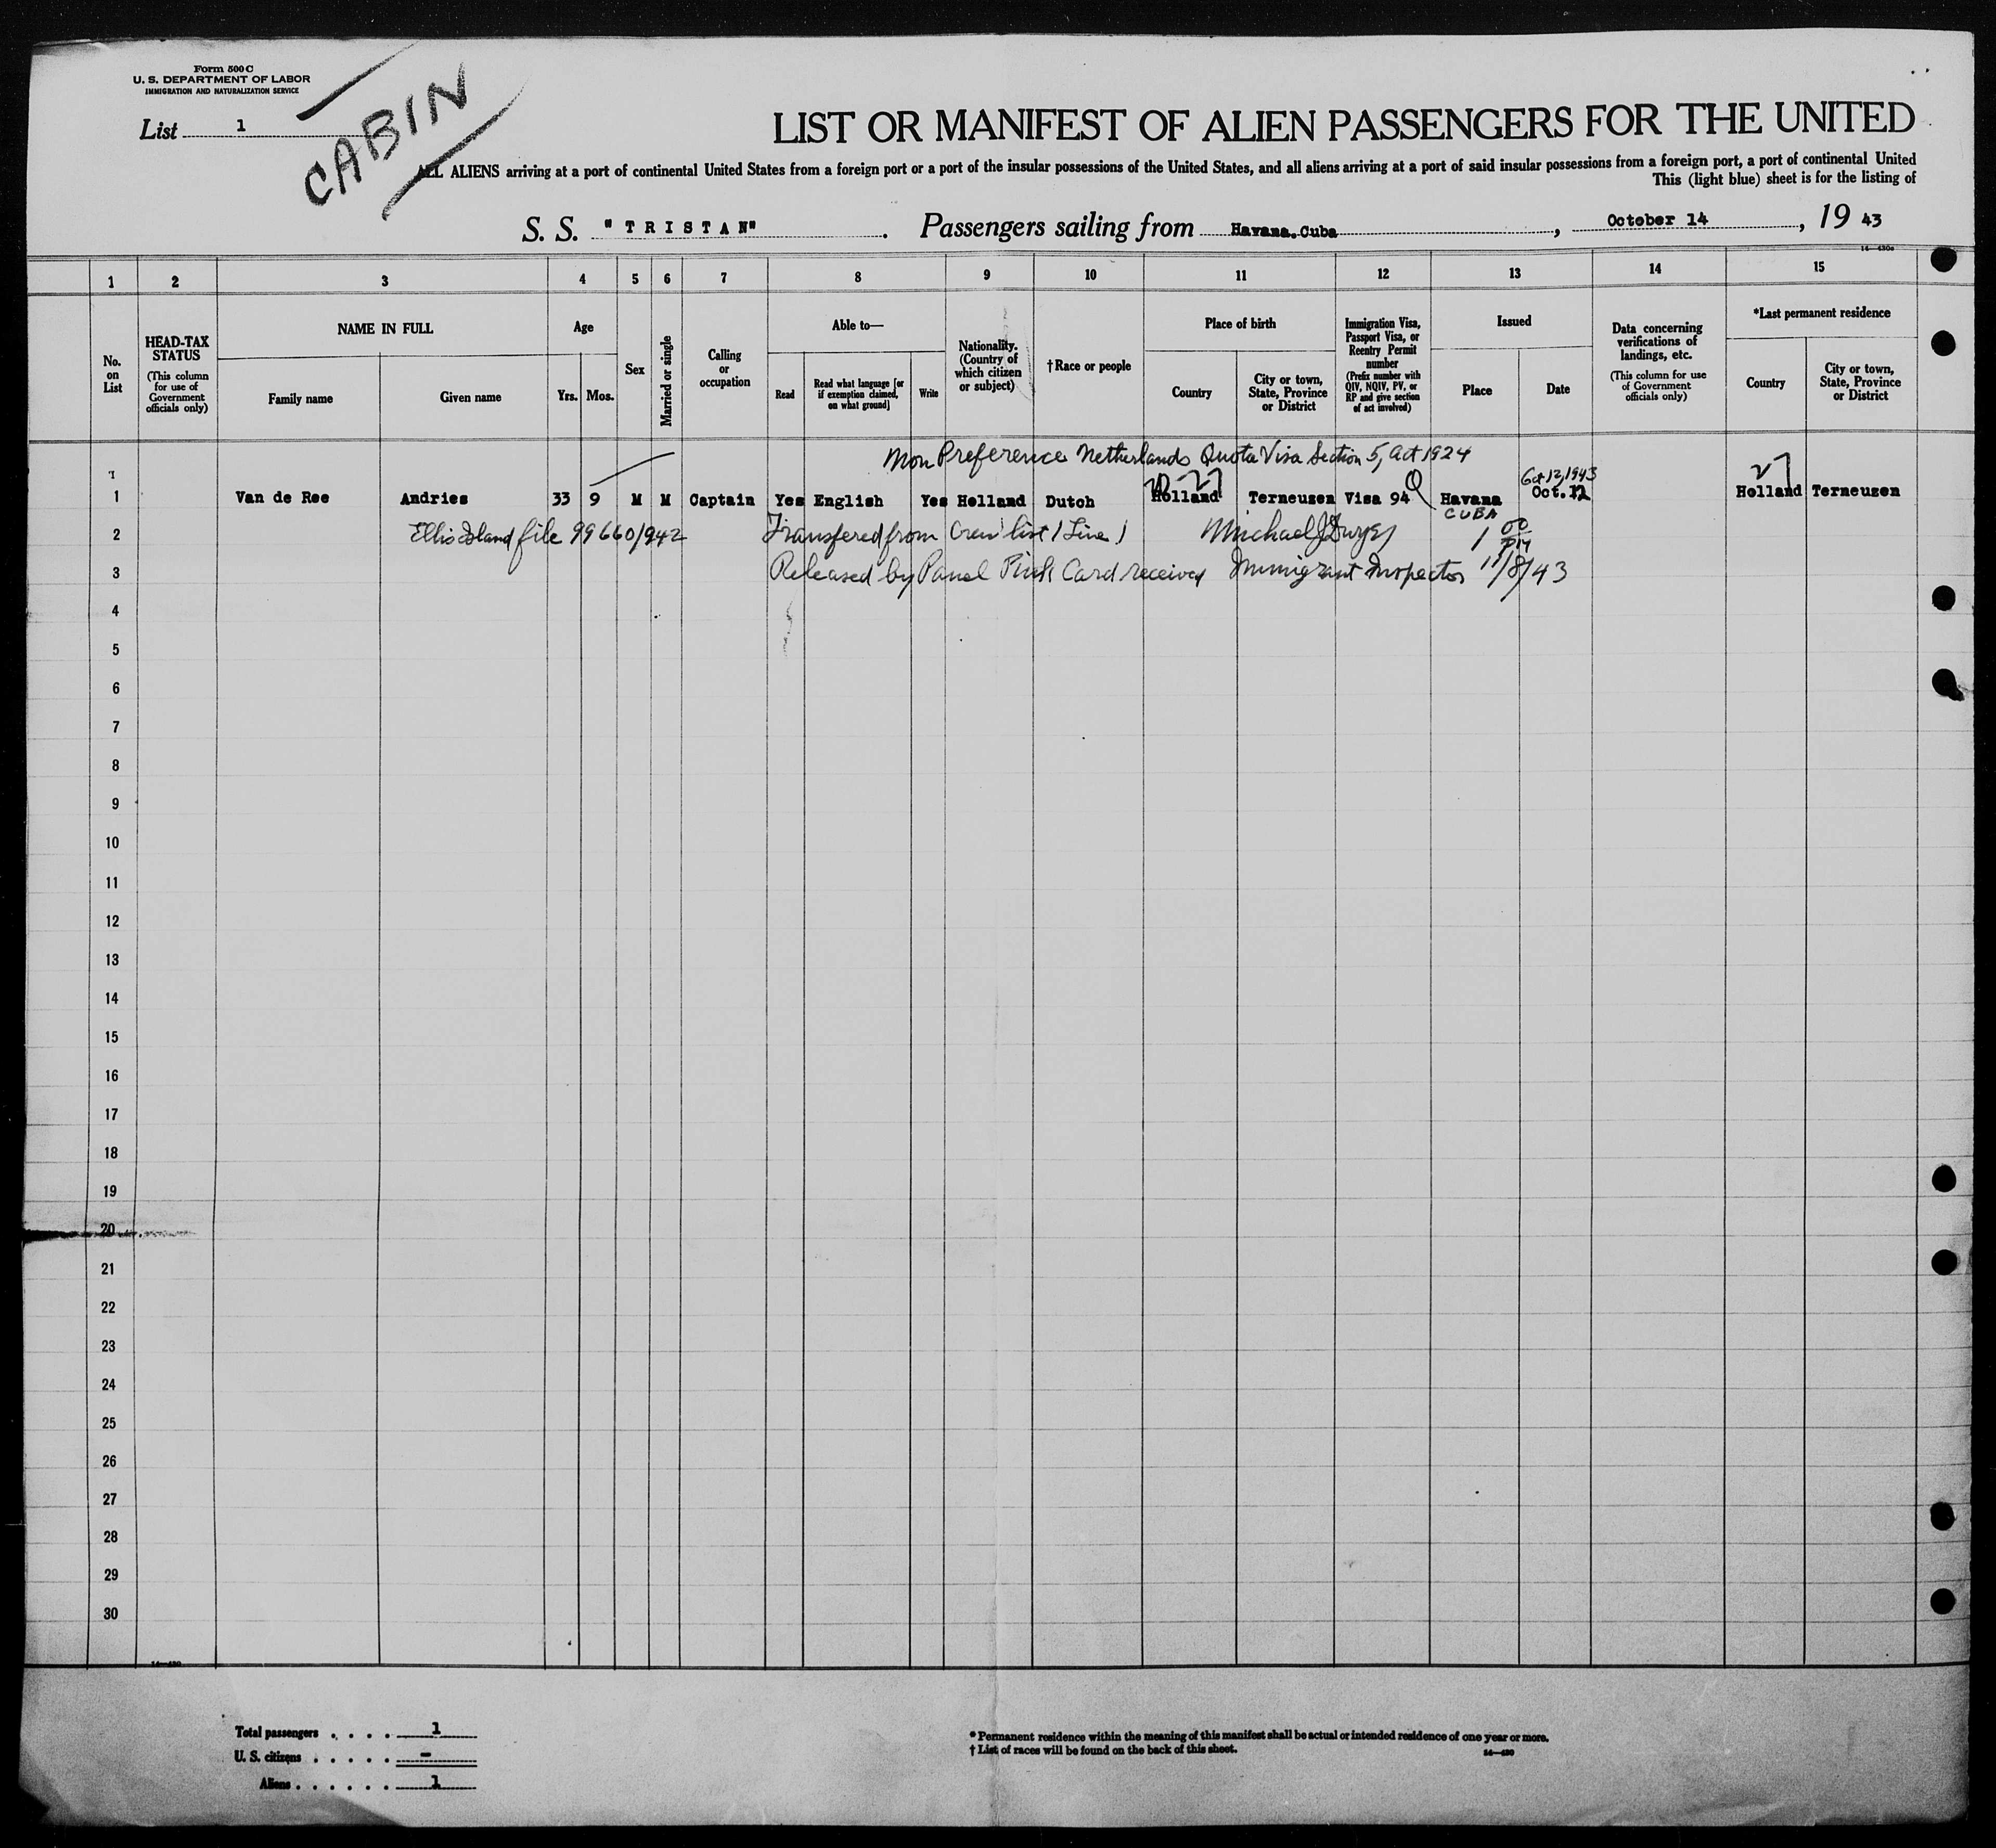 Form 500 C
U. S. DEPARTMENT OF LABOR
IMMIGRATION AND NATURALIZATION SERVICE
List 1
CABIN
LIST OR MANIFEST OF ALIEN PASSENGERS FOR THE UNITED
ALL ALIENS arriving at a port of continental United States from a foreign port or a port of the insular possessions of the United States, and all aliens arriving at a port of said insular possessions from a foreign port, a port of continental United
This (light blue) sheet is for the listing of
S. S. "TRISTAN". Passengers sailing from Havana.Cuba, October 14, 19 43
1 2 3 4 5 6 7 8 9 10 11 12 13 14 15
No. on List
HEAD-TAX STATUS
(This column for use of Government officials only)
NAME IN FULL
Family name
Given name
Age
Yrs.
Mos.
Sex
Married or single
Calling or occupation
Able to—
Read
Read what language [or if exemption claimed, on what ground]
Write
Nationality. (Country of which citizen or subject)
†Race or people
Place of birth
Country
City or town, State, Province or District
Immigration Visa, Passport Visa, or Reentry Permit number
(Prefix number with QIV, NQIV, PV, or RP and give section of act involved)
Issued
Place
Date
Data concerning verifications of landings, etc.
(This column for use of Government officials only)
*Last permanent residence
Country
City or town, State, Province or District
Non Preference Netherlands Quota Visa Section 5, Act 1924
Oct 12, 1943
1 Van de Ree Andries 33 9 M M Captain Yes English Yes Holland Dutch Holland Terneuzen Visa 94 Q Havana Oct.12 Holland Terneuzen
CUBA
2 Ellis Island file 99660/942 Transfered from Crew list 1 Line 1 Michael J Dwyer 1 00 PM
3 Released by Panel Pink Card received Immigrant Inspector 11/8/43
4
5
6
7
8
9
10
11
12
13
14
15
16
17
18
19
20
21
22
23
24
25
26
27
28
29
30
Total passengers . . . . 1
U. S. citizens . . . . . -
Aliens . . . . . . 1
*Permanent residence within the meaning of this manifest shall be actual or intended residence of one year or more.
†List of races will be found on the back of this sheet.